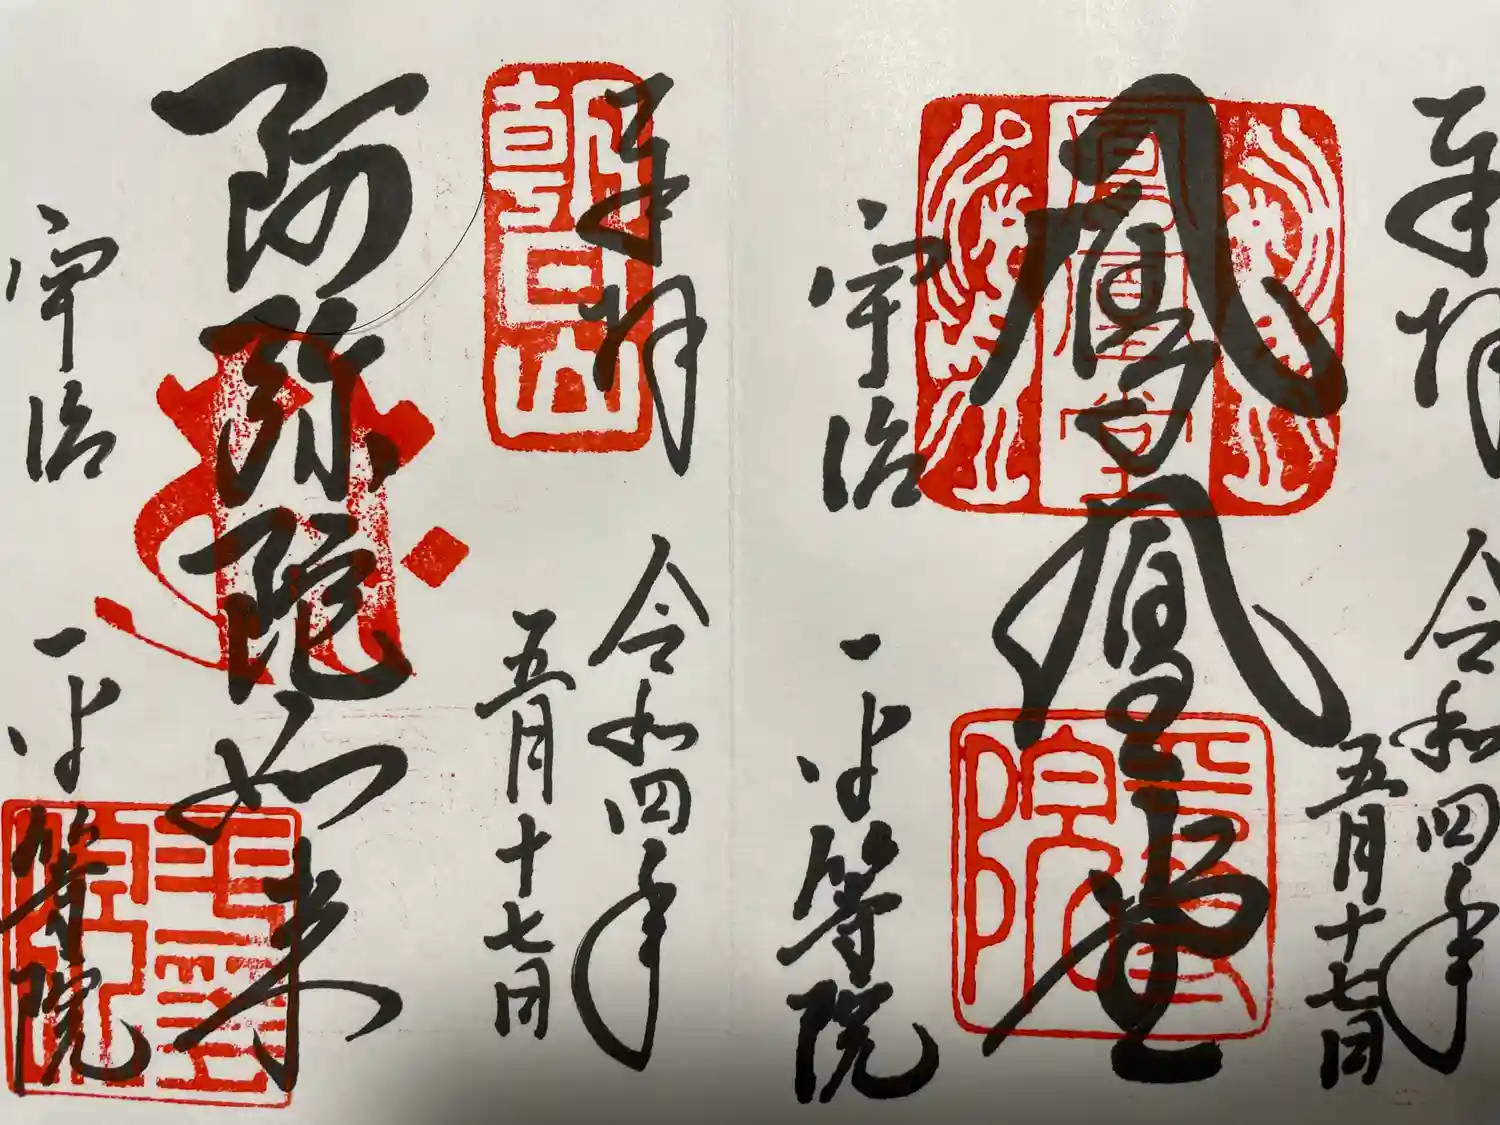 奉拝
令和四年
五月十七日
鳳凰堂
鳳凰堂
宇治
平等院
平等院
奉拝
令和四年
五月十七日
朝日山
阿弥陀如来
宇治
平等院
平等院